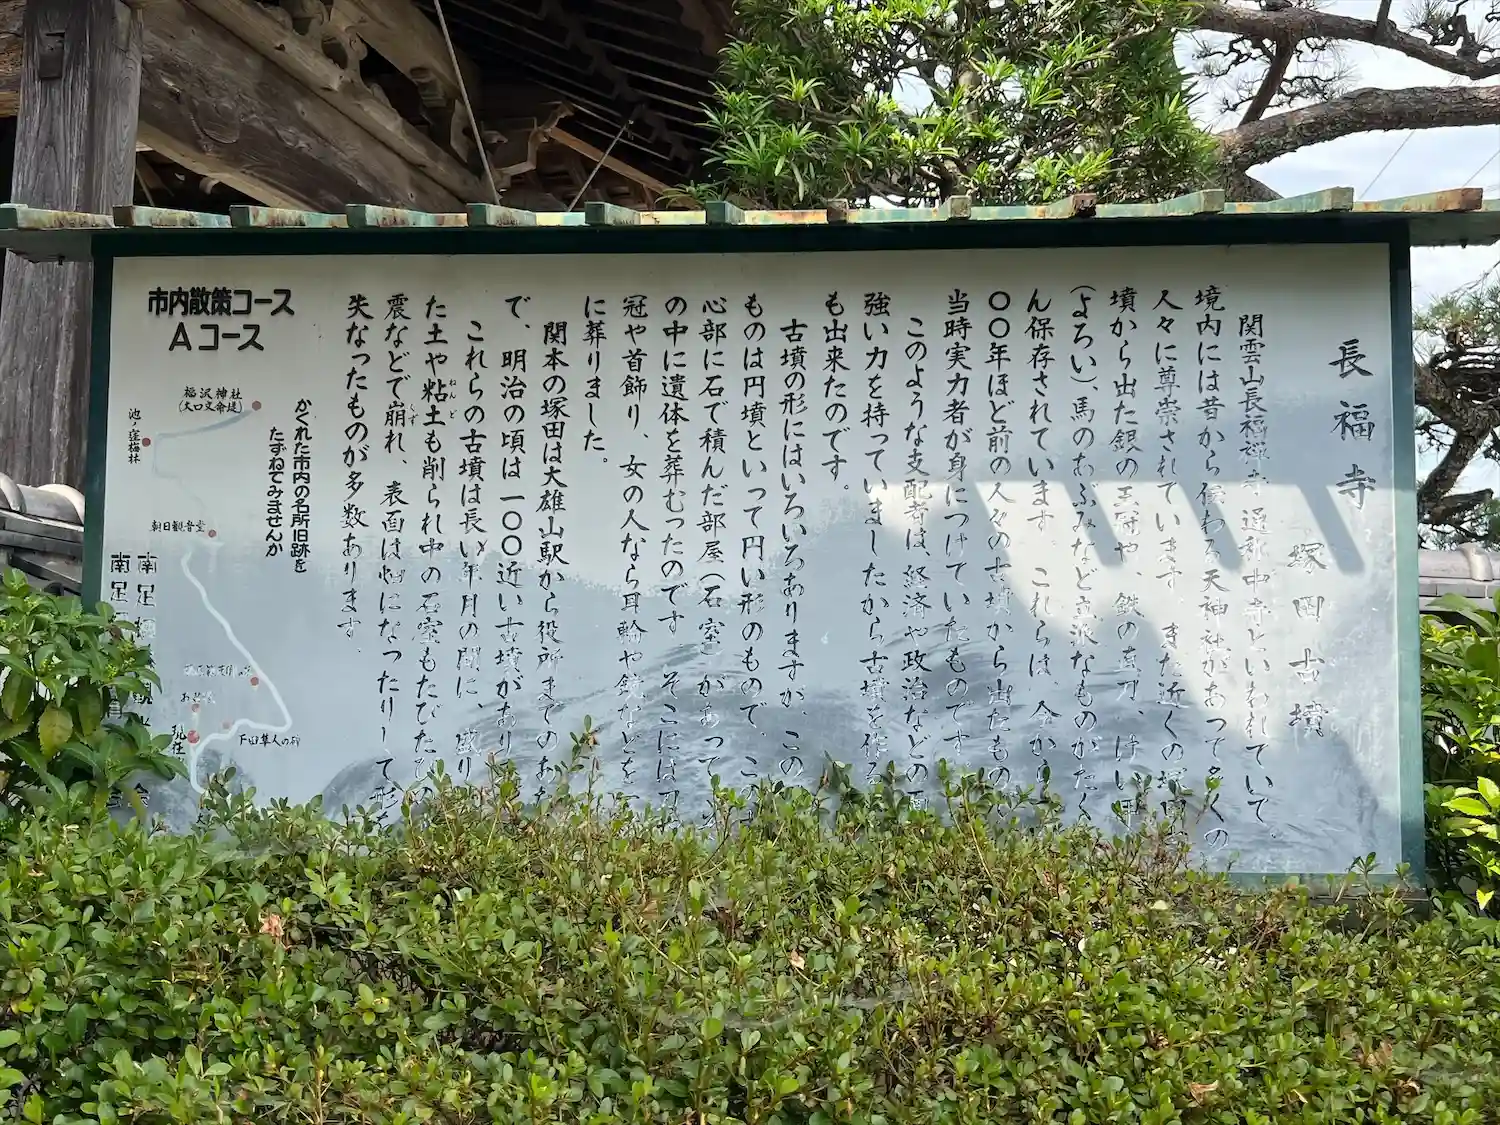 長福寺
塚田古墳
関雲山長福禅寺通称中寺といわれていて、
境内には昔から伝わる天神社があって多くの
人々に尊崇されています。また近くの塚田
墳から出た銀の王冠や、鉄の直刀、けい甲
(よろい)、馬のあぶみなど立派なものがたく
ん保存されています。これらは、今から
〇〇年ほど前の人々の古墳から出たもの
当時実力者が身につけていたものです。
このような支配者は、経済や政治などの面
強い力を持っていましたから古墳を作る
も出来たのです。
古墳の形にはいろいろありますが、この
ものは円墳といって円い形のもので、この
心部に石で積んだ部屋(石室)があって
の中に遺体を葬むったのです。そこには刀
冠や首飾り、女の人なら耳輪や鏡などを
に葬りました。
関本の塚田は大雄山駅から役所までのあ
で、明治の頃は一〇〇近い古墳があり
これらの古墳は長い年月の間に、盛り
た土や粘土も削られ中の石室もたびたびの
ねんど
震などで崩れ、表面は畑になったりして形
くず
失なったものが多数あります。
市内散策コース
Aコース
かくれた市内の名所旧跡を
たずねてみませんか
福沢神社
(大口文命堤)
池ノ窪梅林
朝日観音堂
下田隼人の碑
現在
南足
南足